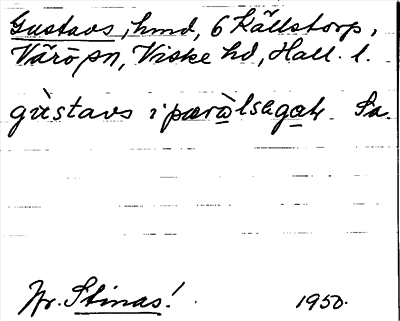 Gustavs, hmd, 6 Källstorp,
Värö sn, Viske hd, Hall. l.
gùstavs i
Sa.
Jfr. Stinas!
1950.